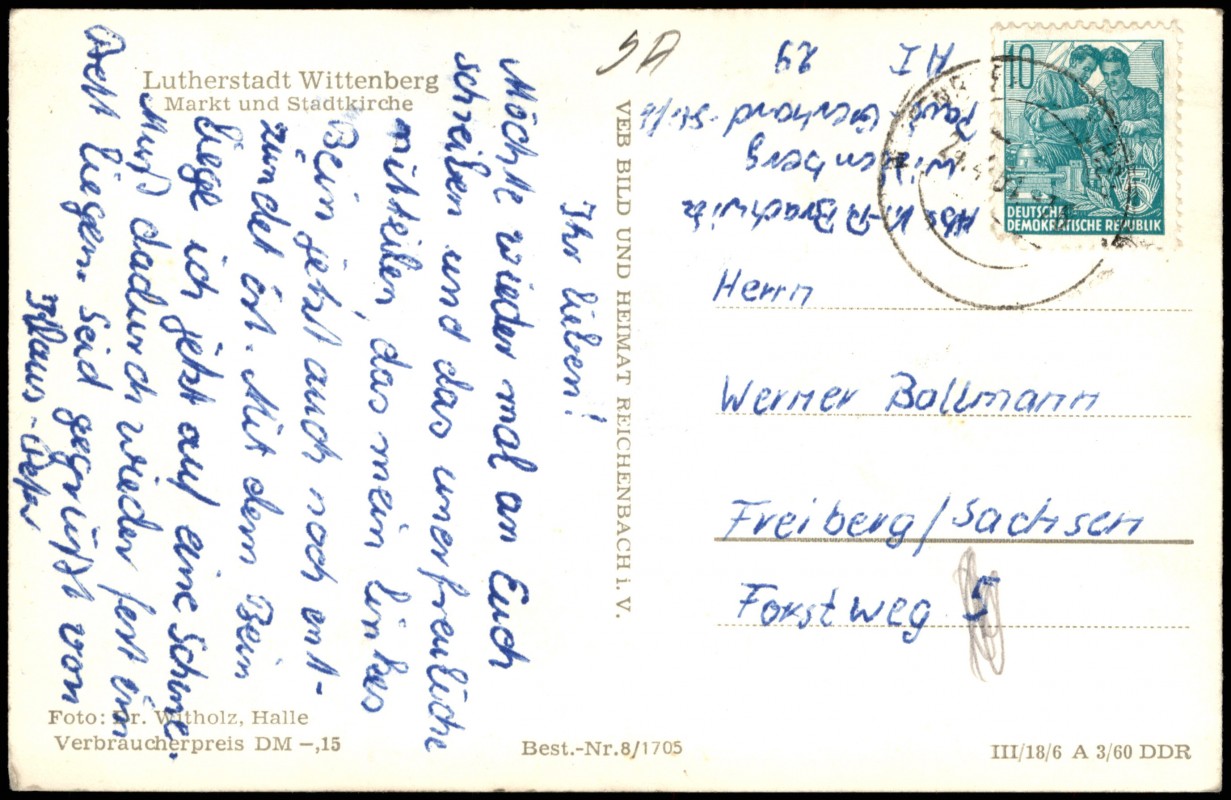 Lutherstadt Wittenberg
Markt und Stadtkirche
Ihr lieben!
Möchte wieder mal an Euch
schreiben und das unerfreuliche
mitteilen, das mein linkes
Bein jetzt auch noch ent-
zündet ist. Mit dem Bein
liege ich jetzt auf eine Schine.
Muß dadurch wieder fest im
Bett liegen. Seid gegrüßt von
Klaus-Peter
VEB BILD UND HEIMAT REICHENBACH i. V.
Abs K.-P. Brachwitz
Wittenberg
Paul-Gerhard-Stift
A I 29
10
5
DEUTSCHE
DEMOKRATISCHE REPUBLIK
Herrn
Werner Bollmann
Freiberg/Sachsen
Forstweg 5
Foto: Dr. Witholz, Halle
Verbraucherpreis DM –,15
Best.-Nr. 8/1705
III/18/6 A 3/60 DDR